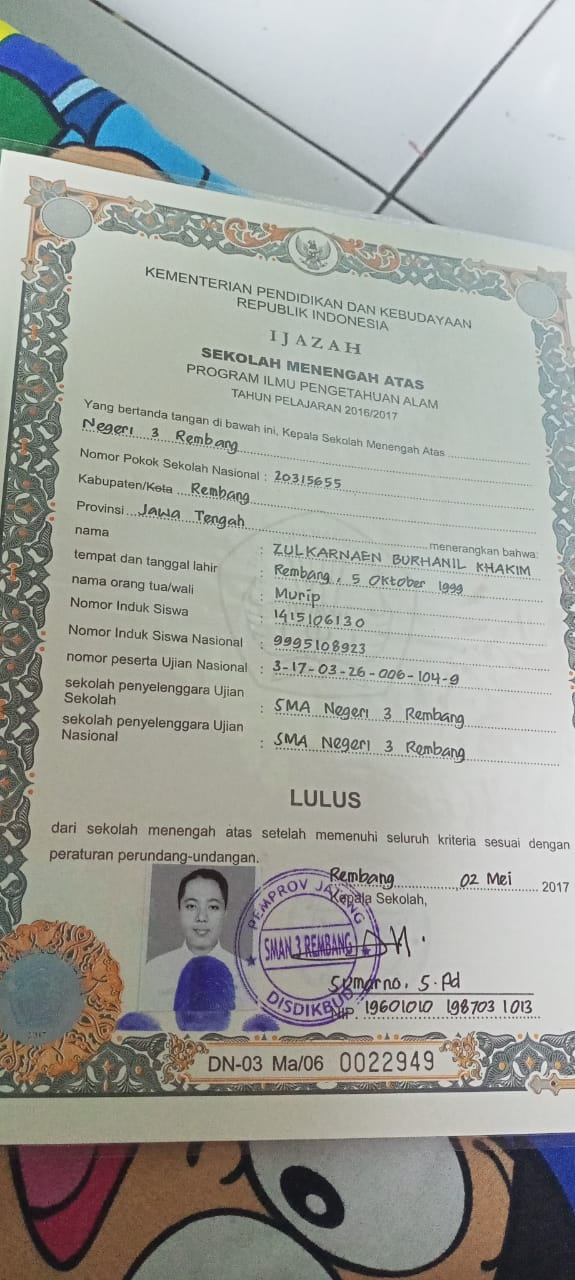 KEMENTERIAN PENDIDIKAN DAN KEBUDAYAAN
REPUBLIK INDONESIA
IJAZAH
SEKOLAH MENENGAH ATAS
PROGRAM ILMU PENGETAHUAN ALAM
TAHUN PELAJARAN 2016/2017
Yang bertanda tangan di bawah ini, Kepala Sekolah Menengah Atas
Negeri 3 Rembang
Nomor Pokok Sekolah Nasional : 20315655
Kabupaten/Kota Rembang
Provinsi Jawa Tengah menerangkan bahwa:
nama : ZULKARNAEN BURHANIL KHAKIM
tempat dan tanggal lahir : Rembang, 5 Oktober 1999
nama orang tua/wali : Murip
Nomor Induk Siswa : 1415106130
Nomor Induk Siswa Nasional : 9995108923
nomor peserta Ujian Nasional : 3-17-03-26-006-104-9
sekolah penyelenggara Ujian
Sekolah : SMA Negeri 3 Rembang
sekolah penyelenggara Ujian
Nasional : SMA Negeri 3 Rembang
LULUS
dari sekolah menengah atas setelah memenuhi seluruh kriteria sesuai dengan
peraturan perundang-undangan.
Rembang, 02 Mei 2017
Kepala Sekolah,
PEMPROV JATENG
SMAN 3 REMBANG
DISDIKBUD
Sumarno, S.Pd
NIP. 19601010 198703 1 013
DN-03 Ma/06 0022949